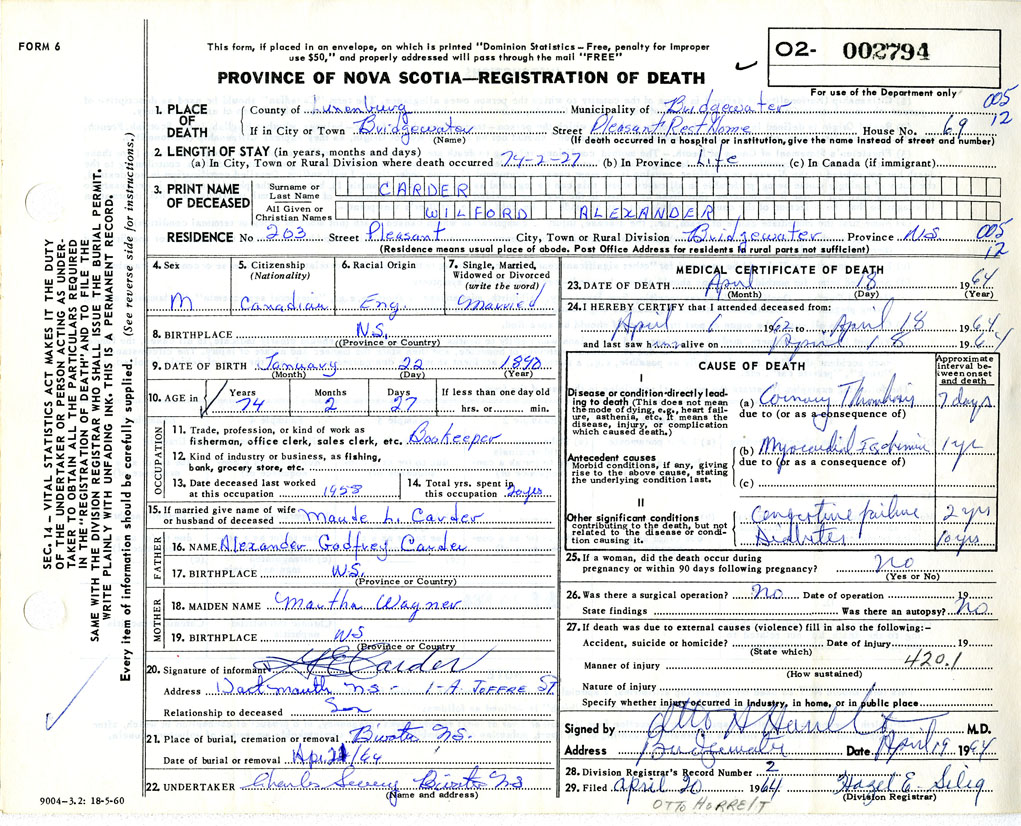 FORM 6
This form, if placed in an envelope, on which is printed "Dominion Statistics – Free, penalty for improper
use $50," and properly addressed will pass through the mail "FREE"
PROVINCE OF NOVA SCOTIA—REGISTRATION OF DEATH
O2- 002794
For use of the Department only
005
12
1. PLACE OF DEATH
County of Lunenburg Municipality of Bridgewater
If in City or Town Bridgewater Street Pleasant Rest Home House No. 69
(Name) (If death occurred in a hospital or institution, give the name instead of street and number)
2. LENGTH OF STAY (in years, months and days)
(a) In City, Town or Rural Division where death occurred 74-2-27 (b) In Province Life (c) In Canada (if immigrant)
3. PRINT NAME OF DECEASED
Surname or Last Name CARDER
All Given or Christian Names WILFORD ALEXANDER
RESIDENCE No 203 Street Pleasant City, Town or Rural Division Bridgewater Province N.S.
005
12
(Residence means usual place of abode. Post Office Address for residents of rural parts not sufficient)
4. Sex
M
5. Citizenship
(Nationality)
Canadian
6. Racial Origin
Eng.
7. Single, Married, Widowed or Divorced
(write the word)
Married
8. BIRTHPLACE N.S.
((Province or Country)
9. DATE OF BIRTH January 22 1890
(Month) (Day) (Year)
10. AGE in
Years Months Days If less than one day old
74 2 27 hrs. or min.
OCCUPATION
11. Trade, profession, or kind of work as
fisherman, office clerk, sales clerk, etc. Bookeeper
12. Kind of industry or business, as fishing,
bank, grocery store, etc.
13. Date deceased last worked
at this occupation 1958
14. Total yrs. spent in
this occupation 20 yrs
15. If married give name of wife
or husband of deceased Maude L. Carder
FATHER
16. NAME Alexander Godfrey Carder
17. BIRTHPLACE N.S.
(Province or Country)
MOTHER
18. MAIDEN NAME Martha Wayner
19. BIRTHPLACE NS
(Province or Country
20. Signature of informant Carder
Address Dartmouth N.S. - 1-A JOFFRE ST
Relationship to deceased Son
21. Place of burial, cremation or removal NS.
Date of burial or removal Apr 21/64
22. UNDERTAKER Charles NS
(Name and address)
MEDICAL CERTIFICATE OF DEATH
23. DATE OF DEATH April 18 1964
(Month) (Day) (Year)
24. I HEREBY CERTIFY that I attended deceased from:
April 1 1962 to April 18 1964
and last saw him alive on April 18 1964
CAUSE OF DEATH
Approximate interval between onset and death
I
Disease or condition directly leading to death (This does not mean
the mode of dying, e.g., heart failure, asthenia, etc. It means the
disease, injury, or complication
which caused death.)
(a) Coronary Thrombosis 7 days
due to (or as a consequence of)
Antecedent causes
Morbid conditions, if any, giving
rise to the above cause, stating
the underlying condition last.
(b) Myocardial Ischemia 1 yr
due to (or as a consequence of)
(c)
II
Other significant conditions
contributing to the death, but not
related to the disease or condition causing it.
Congestive failure 2 yrs
Diabetes 10 yrs
25. If a woman, did the death occur during
pregnancy or within 90 days following pregnancy? No
(Yes or No)
26. Was there a surgical operation? No Date of operation 19
State findings Was there an autopsy? No
27. If death was due to external causes (violence) fill in also the following:–
Accident, suicide or homicide? Date of injury 19
(State which)
420.1
Manner of injury
(How sustained)
Nature of injury
Specify whether injury occurred in Industry, in home, or in public place
Signed by Otto H M.D.
Address Bridgewater Date April 19 1964
28. Division Registrar's Record Number 2
29. Filed April 20 1964 Hazel E. Selig
(Division Registrar)
9004-3.2: 18-5-60
SEC. 14 – VITAL STATISTICS ACT MAKES IT THE DUTY
OF THE UNDERTAKER OR PERSON ACTING AS UNDER-
TAKER TO OBTAIN ALL THE PARTICULARS REQUIRED
IN THE "REGISTRATION OF DEATH" AND TO FILE THE
SAME WITH THE DIVISION REGISTRAR WHO SHALL ISSUE THE BURIAL PERMIT.
WRITE PLAINLY WITH UNFADING INK. THIS IS A PERMANENT RECORD.
Every item of information should be carefully supplied. (See reverse side for instructions.)